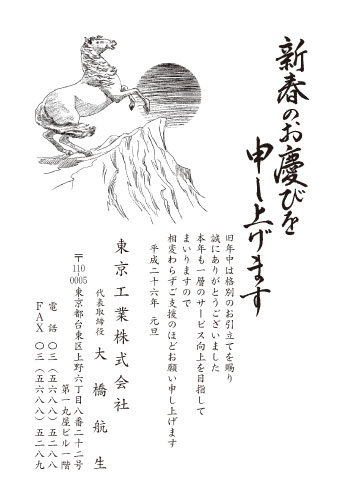 新春のお慶びを
申し上げます
旧年中は格別のお引立てを賜り
誠にありがとうございました
本年も一層のサービス向上を目指して
まいりますので
相変わらずご支援のほどお願い申し上げます
平成二十六年 元旦
東京工業株式会社
代表取締役 大橋航生
〒110-0005 東京都台東区上野六丁目八番二十二号
第一丸屋ビル一階
電話 〇三(五六八八)五二八八
FAX 〇三(五六八八)五二八九